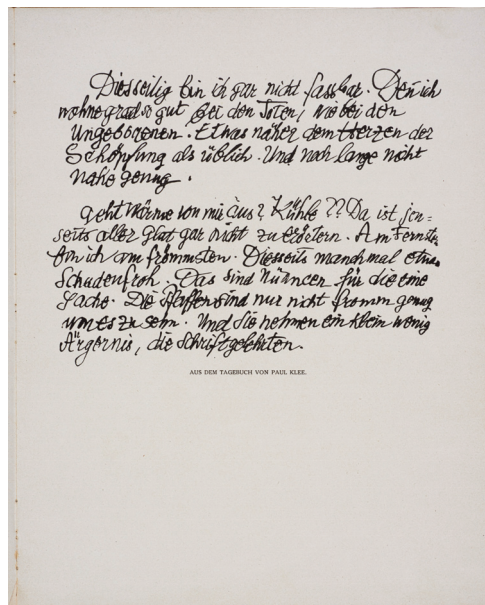 Diesseitig bin ich gar nicht fassbar. Deñ ich
wohne grad so gut bei den Toten, wie bei den
Ungeborenen. Etwas näher dem Herzen der
Schöpfung als üblich. Und noch lange nicht
nahe genug.
Geht Wärme von mir aus? Kühle?? Da ist jen=
seits aller Glut gar nicht zu erörtern. Am Fernsten
bin ich am frömmsten. Diesseits manchmal etwas
Schadenfroh. Das sind Nüancen für die eine
Sache. Die Pfaffen sind nur nicht fromm genug
um es zu sehn. Und Sie nehmen ein klein wenig
Ärgernis, die Schriftgelehrten.
AUS DEM TAGEBUCH VON PAUL KLEE.